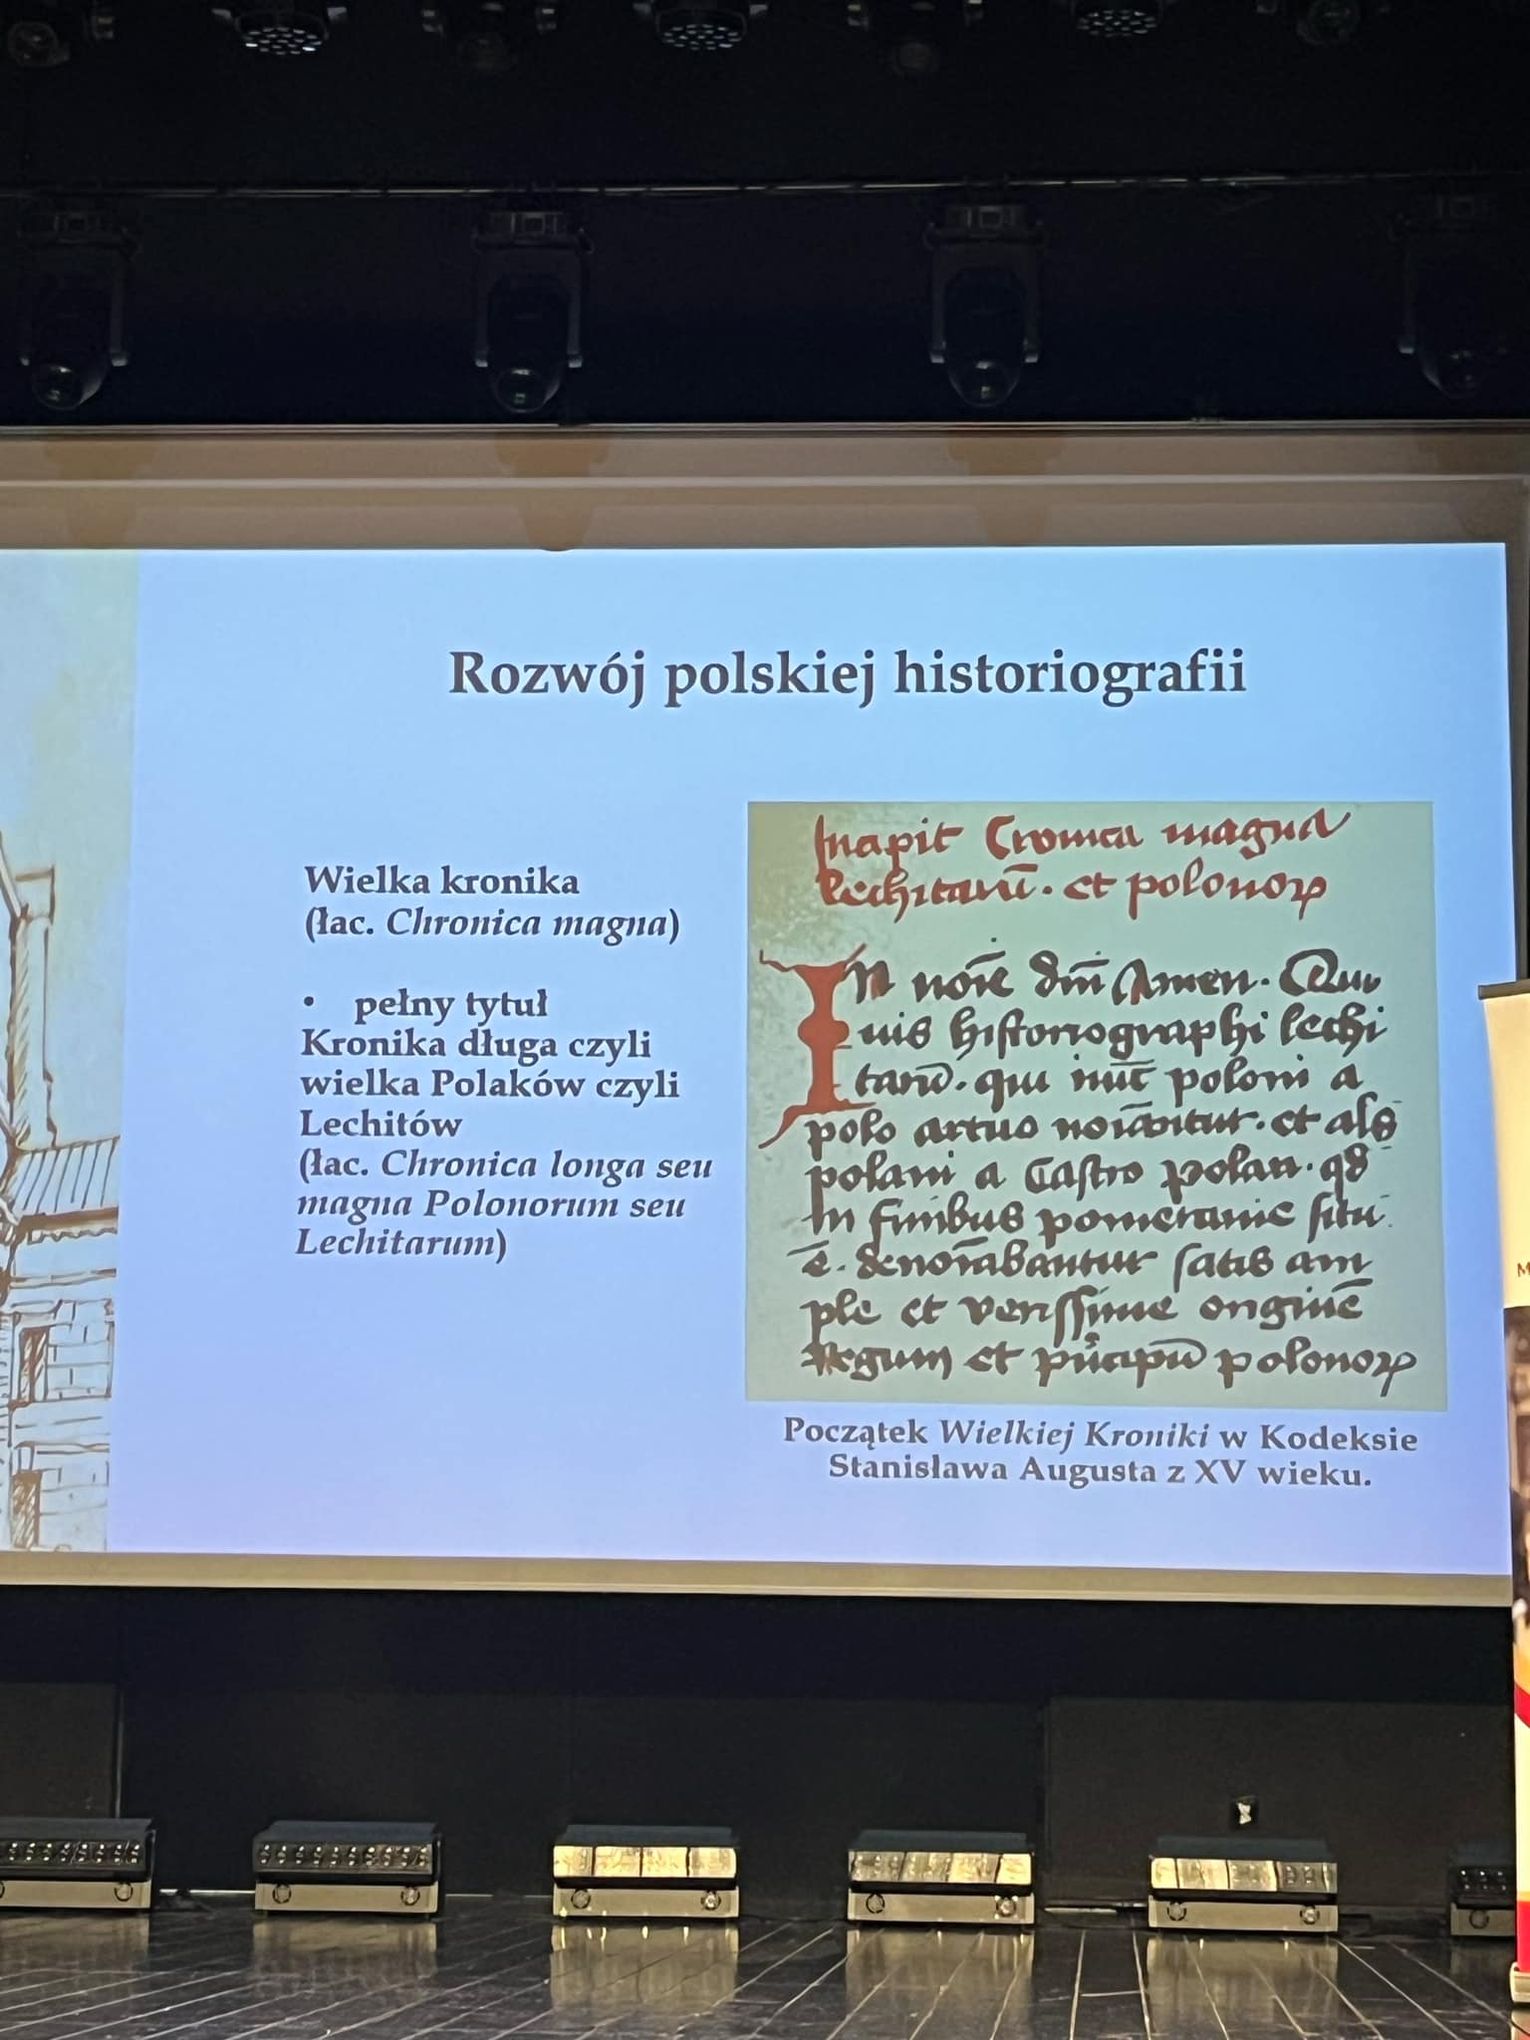 Rozwój polskiej historiografii
Wielka kronika
(łac. Chronica magna)
• pełny tytuł
Kronika długa czyli
wielka Polaków czyli
Lechitów
(łac. Chronica longa seu
magna Polonorum seu
Lechitarum)
Incipit Cronica magna
lechitarū. et polonoꝝ
In noīe dm̄ Amen. Quis
uis historiographi lechi
tarū. qui nūc poloni a
polo artico noīantur. et als
polani a Castro polan. qd
In finibus pomeranie situ
ē. denoīabantur satis am
ple et verissime originē
Regum et pncipū polonoꝝ
Początek Wielkiej Kroniki w Kodeksie
Stanisława Augusta z XV wieku.